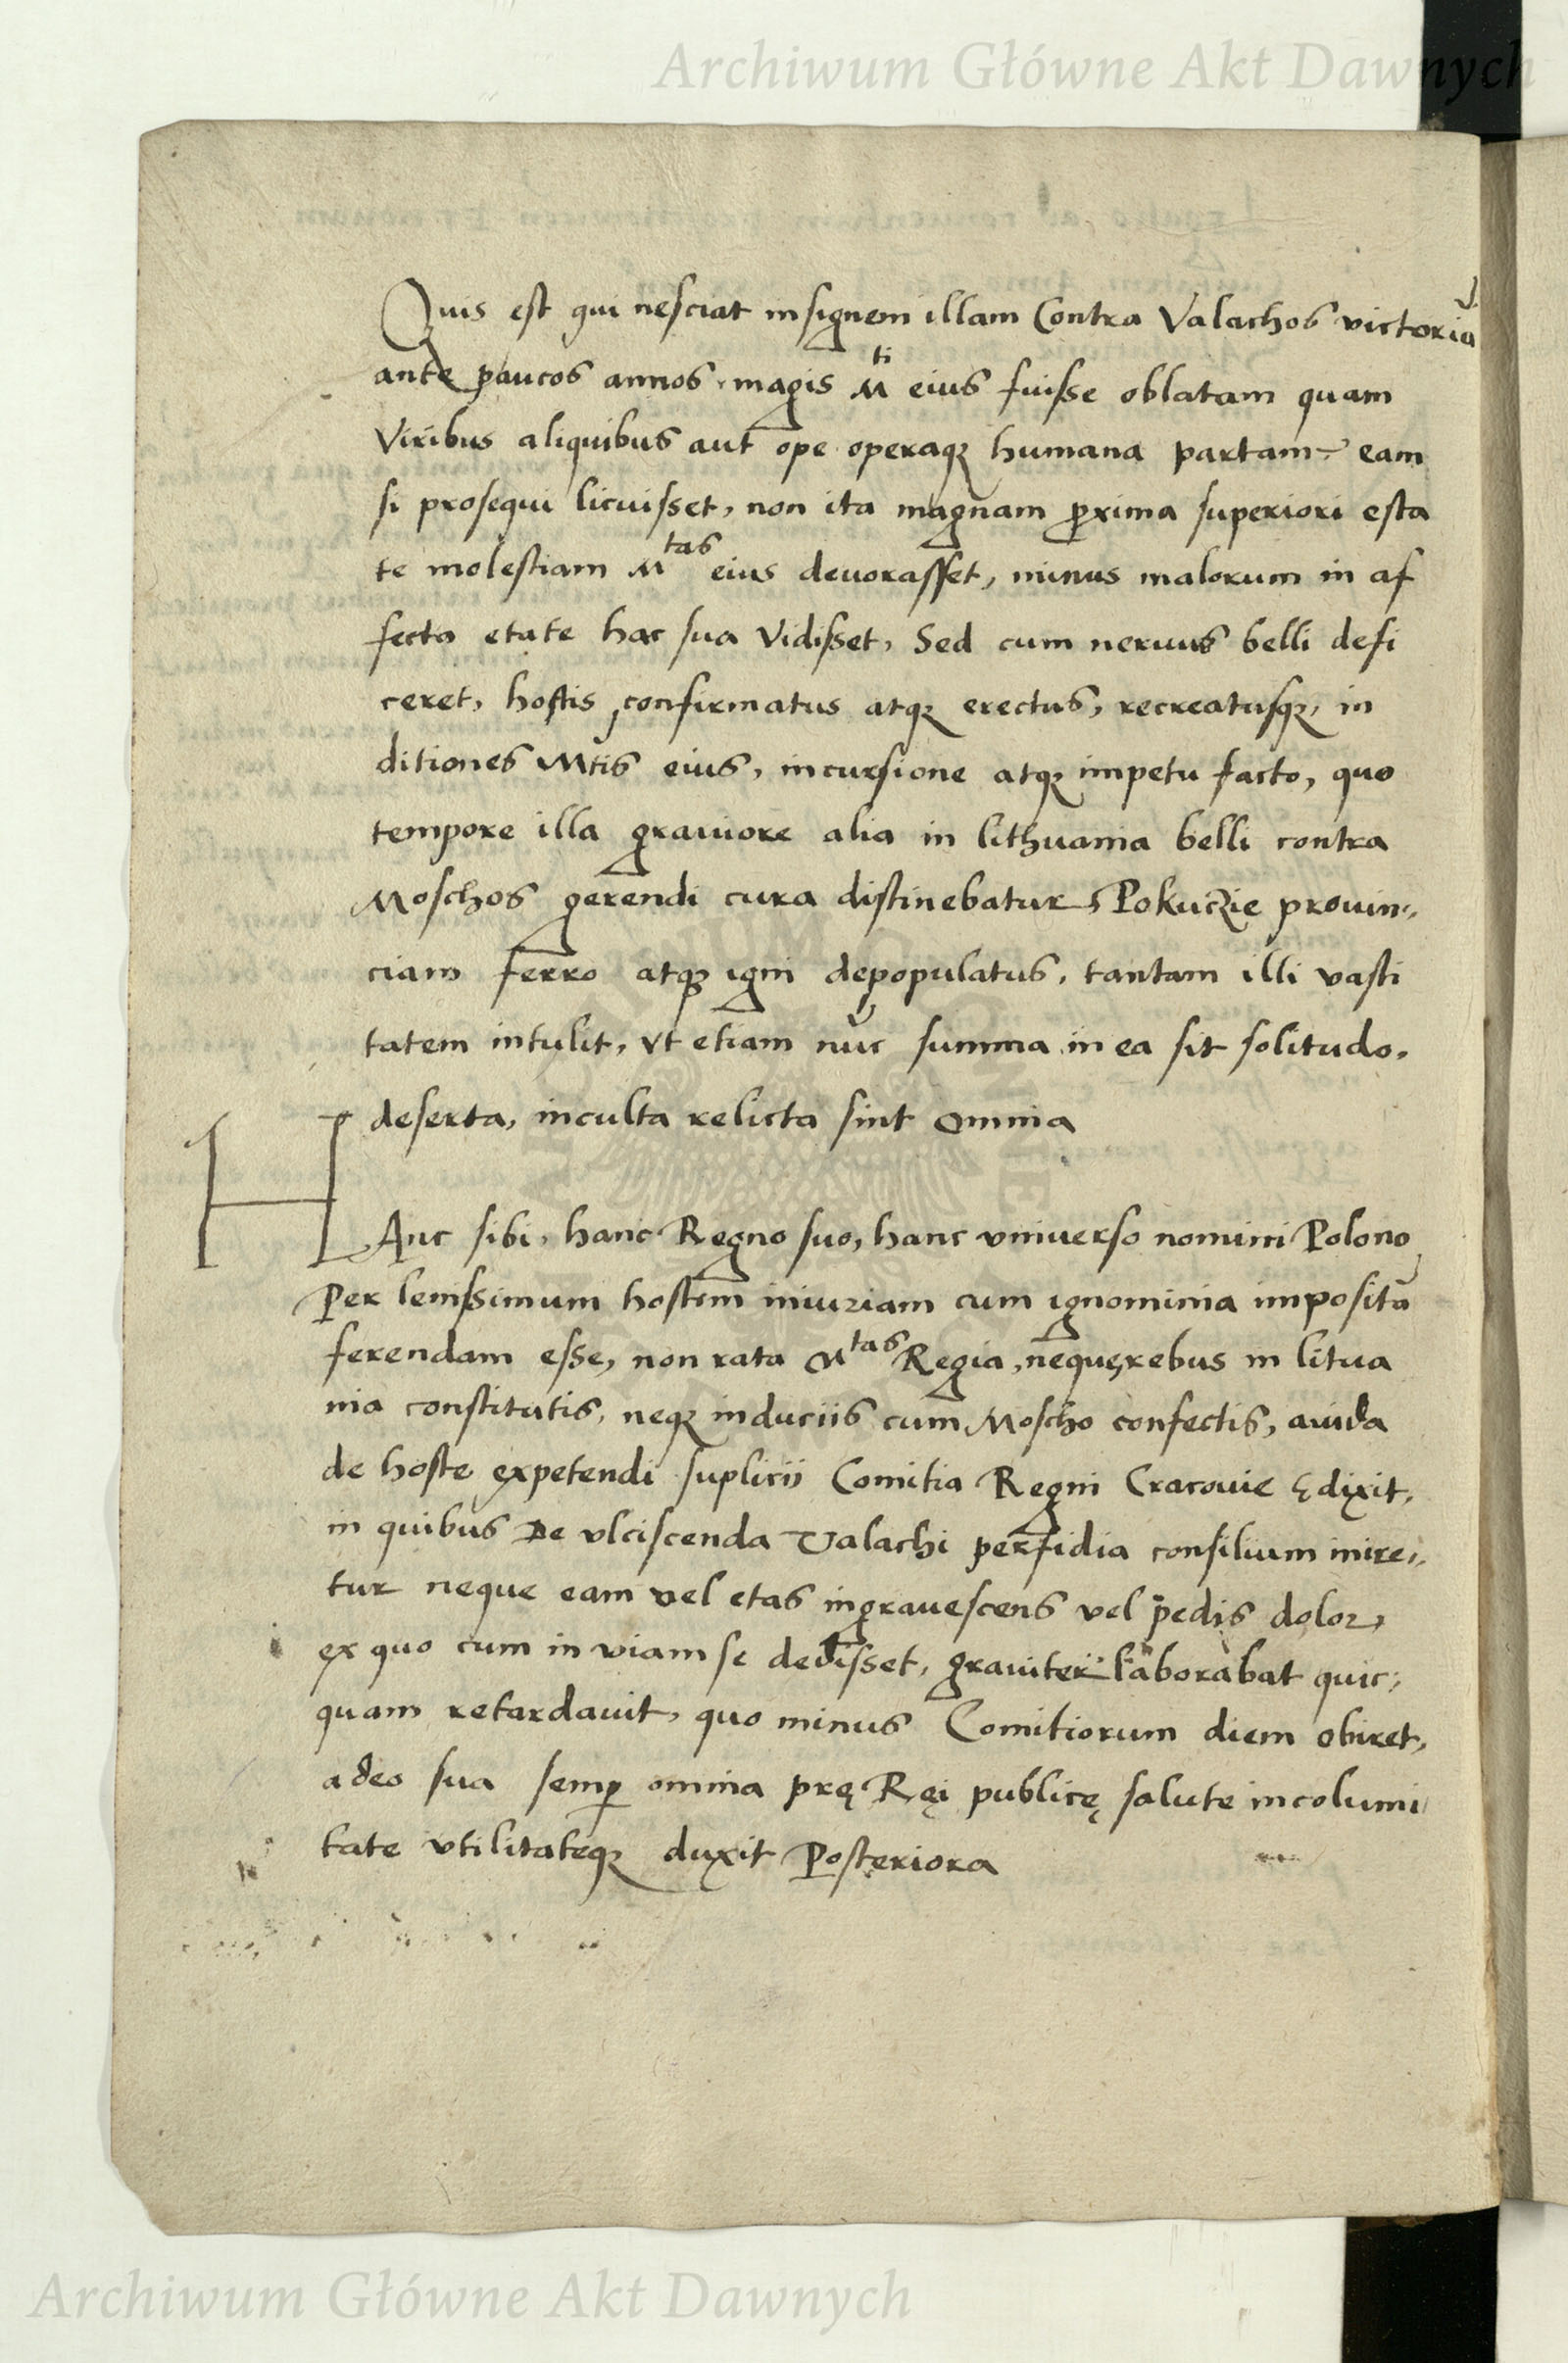 Archiwum Główne Akt Dawnych
Quis est qui nesciat insignem illam Contra Valachos victoriā
ante paucos annos magis M^ti eius fuisse oblatam quam
Viribus aliquibus aut ope operaq; humana partam, eam
si prosequi licuisset, non ita magnam proxima superiori esta
te molestiam M^tas eius deuorasset, minus malorum in af
fecta etate hac sua Vidisset, Sed cum neruus belli defi
ceret, hostis confirmatus atq; erectus, recreatusq;, in
ditiones Mtis eius, incursione atq; impetu facto, quo
tempore illa grauiore alia in lithuania belli contra
Moschos gerendi cura distinebatur, Pokuczie prouin,,
ciam ferro atq; igni depopulatus, tantam illi vasti
tatem intulit, vt etiam nūc summa in ea sit solitudo,
deserta, inculta relicta sint omnia
HAnc sibi, hanc Regno suo, hanc vniuerso nomini Polono
Per lenissimum hostem iniuriam cum ignominia impositā
ferendam esse, non rata M^tas Regia, neque rebus in litua
nia constitutis, neq; induciis cum Moscho confectis, auida
de hoste expetendi suplicii Comitia Regni Cracouie ędixit,
in quibus De vlciscenda Valachi perfidia consilium inire,,
tur neque eam vel etas ingrauescens vel pedis dolor,
ex quo cum in viam se dedisset, grauiter laborabat quic,,
quam retardauit, quo minus Comitiorum diem obiret,
adeo sua semper omnia pre Ręi publicę salute incolumi
tate vtilitateq; duxit Posteriora
Archiwum Główne Akt Dawnych